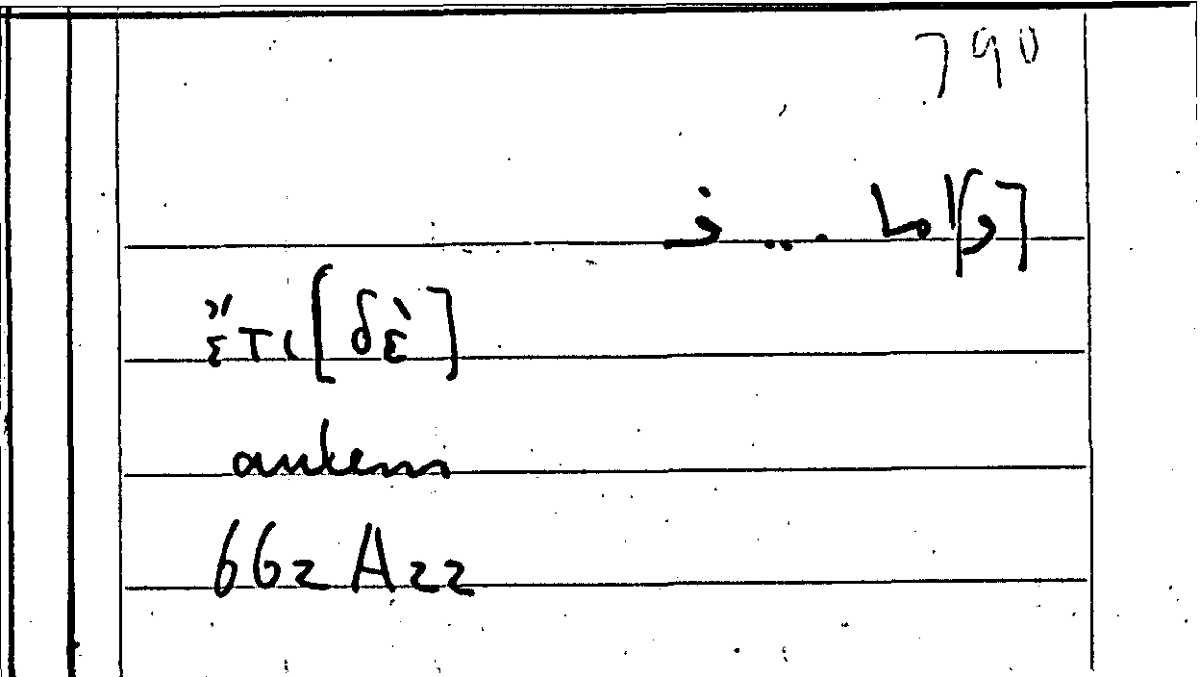 790
[و]اما ... فـ
ἔτι [δὲ]
autem
662 A 22